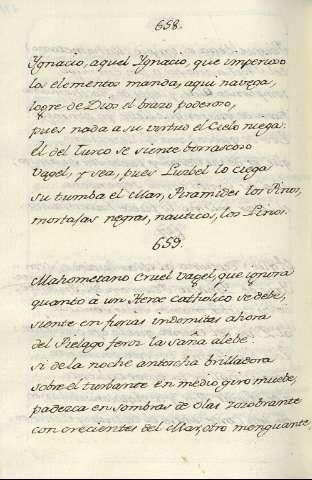 658.
Ygnacio, aquel Ygnacio, que imperioso
los elementos manda, aqui navega,
logre de Dios el brazo poderoso,
pues nada a su virtud el Cielo niega.
El del Turco se siente borrascoso
Vagel, y sea, pues Luzbel lo ciega
su tumba el Mar, Piramides los Pinos,
mortajas negras, nauticos, los Linos.
659.
Mahometano Cruel Vagel, que ignora
quanto â un Heroe Catholico se debe,
siente en furias indomitas ahora
del Pielago feroz la saña alebe:
si de la noche antorcha brilladora
sobre el turbante en medio giro muebe,
padezca en sombras de olas zozobrante
con crecientes del Mar, otro menguante.